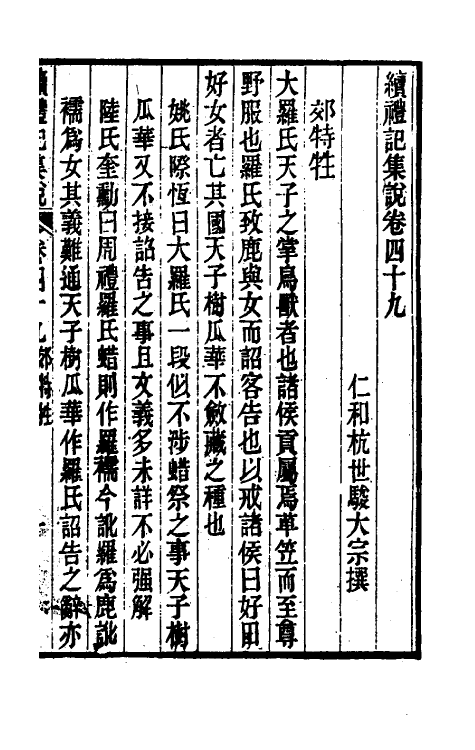 續禮記集說卷四十九
仁和杭世駿大宗撰
郊特牲
大羅氏天子之掌鳥獸者也諸侯貢屬焉草笠而至尊
野服也羅氏致鹿與女而詔客告也以戒諸侯曰好田
好女者亡其國天子樹瓜華不斂藏之種也
姚氏際恆曰大羅氏一段似不涉蜡祭之事天子樹
瓜華又不接詔告之事且文義多未詳不必强解
陸氏奎勳曰周禮羅氏蜡則作羅襦今訛羅為鹿訛
襦為女其義難通天子樹瓜華作羅氏詔告之辭亦
續禮記集說 卷四十九 郊特牲